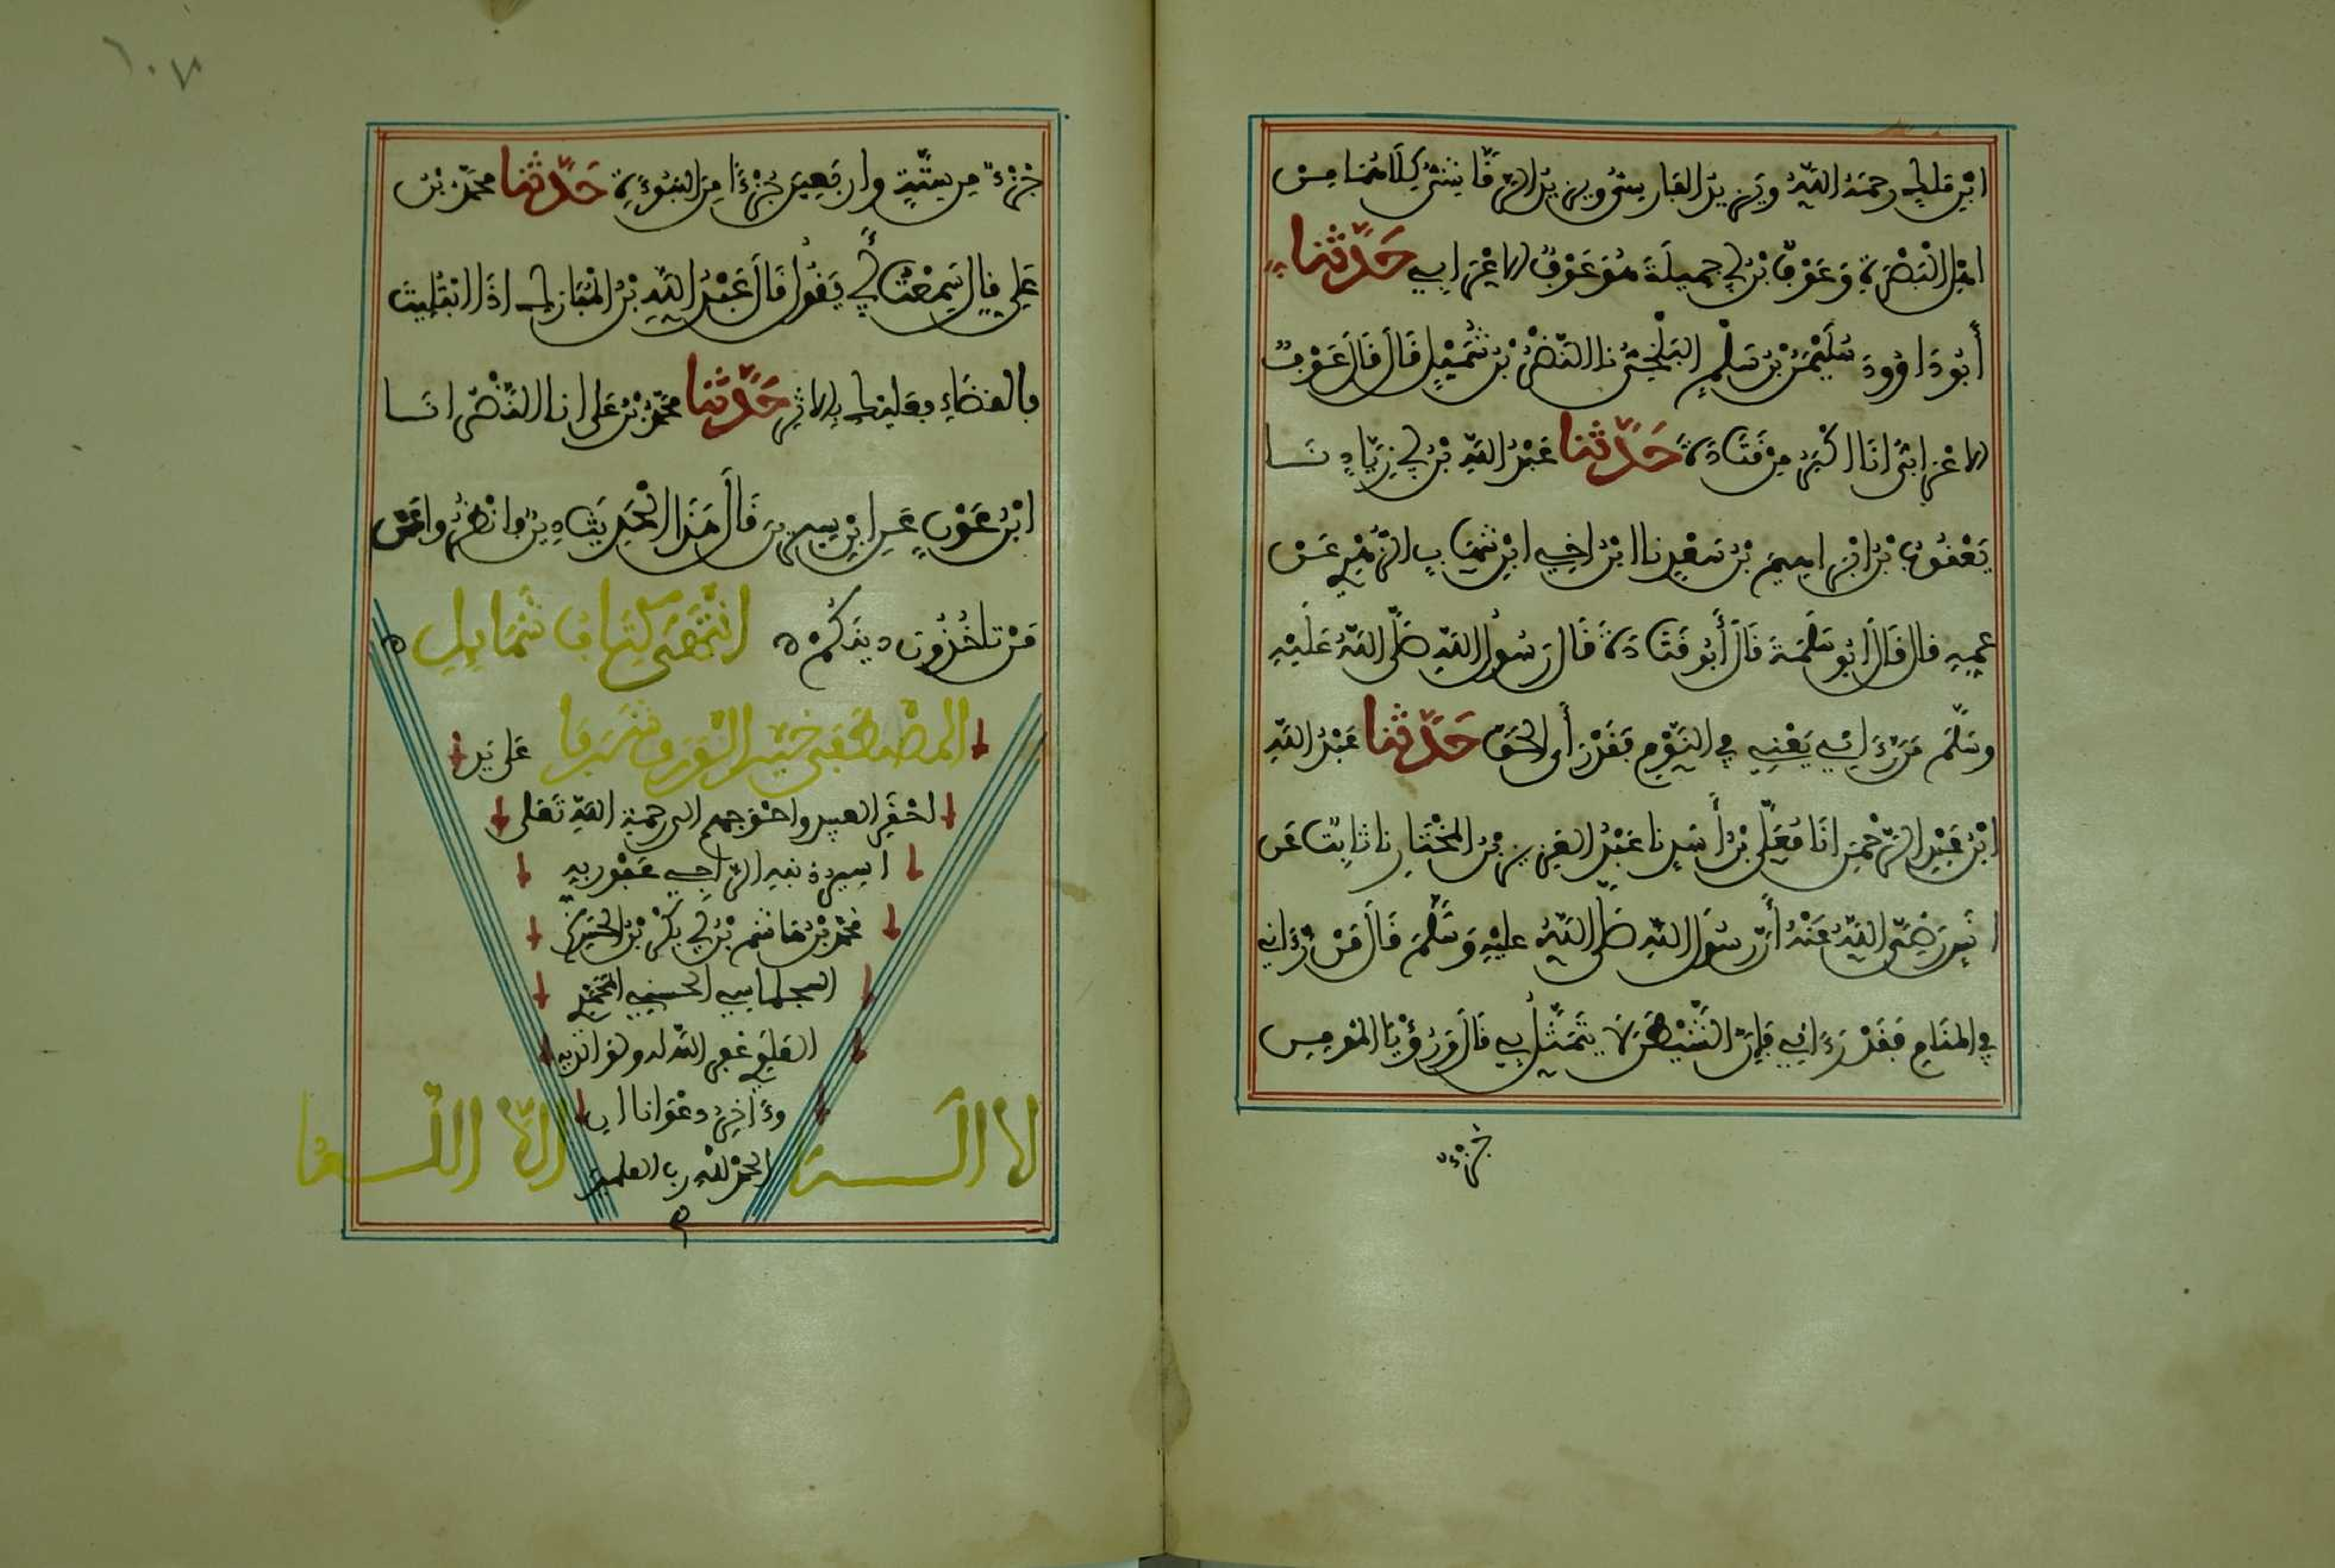 ابْنِ مٰلك رحمَهُ اللَّهُ ويَزِيدُ الفَارِسِيُّ ويزيدُ الرَّقَّاشِيُّ كِلَاهُمَا مِنْ
اهْلِ الْبَصْرَةِ وَعَوْفُ بْنُ أبي جميلَةَ هُوَ عَوْفٌ الاعْرَابي حَدَّثَنَا
أَبُو دَاوُودَ سُلَيْمٰنُ بْنُ سَلْمٍ البَلْخِيُّ نا النَّضْرُ بْنُ شُمَيْلٍ قَالَ قَالَ عَوْفٌ
الاعْرَابيُّ انَا اكْبَرُ مِنْ قَتَادَةَ حَدَّثَنَا عَبْدُ اللَّهِ بْنُ أبي زِيَادٍ نَا
يَعْقُوبُ بْنُ ابْرٰاهِيمَ بْنِ سَعْدٍ نا ابْنُ اخِي ابْنِ شِهَابٍ الزُّهْرِي عَنْ
عمِّهِ قال قَالَ ابُو سَلَمَةَ قَالَ أَبُو قَتَادَةَ قَالَ رَسُولُ اللَّهِ صَلَّى اللَّهُ عَلَيْهِ
وسَلَّمَ مَن رَءَانِي يَعْنِي فِي النَّوْمِ فَقَدْ رَأَى الْحَقَّ حَدَّثَنَا عَبْدُ اللَّهِ
ابْنُ عَبْدِ الرَّحْمٰنِ انَا مُعَلَّى بْنُ أَسَدٍ نا عَبْدُ العَزِيزِ بْنُ المُخْتَارِ نا ثَابِتٌ عَن
انَسٍ رَضِيَ اللَّهُ عَنْهُ أَنَّ رَسُولَ اللَّهِ صَلَّى اللَّهُ عليْهِ وَسَلَّمَ قَالَ مَنْ رَءَانِي
فِي المنَامِ فَقَدْ رَءَانِي فَإِنَّ الشَّيْطٰنَ لَا يَتَمَثَّلُ بِي قَالَ وَرُؤْيَا المُومِنِ
جُزْءٌ
١٠٧
جُزْءٌ مِن سِتَّةٍ وارْبَعِينَ جُزْءًا مِنَ النبُوءَةِ حَدَّثَنَا محَمَّدُ بْنُ
عَلِي قال سَمِعْتُ أبي يَقُولُ قَالَ عَبْدُ اللَّهِ بْنُ الْمُبَارَكِ اذَا ابْتُلِيتَ
بالقضَاءِ فعَليك بالاثَرِ حَدَّثَنَا مُحَمَّدُ بْنُ عَلي نا النَّضْرُ انَا
ابْنُ عَوْنٍ عَنِ ابْنِ سِيرِينَ قَالَ هَذَا الْحَدِيثُ دِينٌ وانْظُرُوا عَمَّنْ
مَنْ تاخُذُونَ دِينَكُمْ ه انْتَهَى كِتَابُ شَمَايِلِ ه
المُصْطَفَى خَيْرِ الْوَرَى شَرَفًا عَلَى يَدِ
احْقَرِ العبيد واحْوَجهم الى رحمةِ اللَّهِ تَعَلى
اسير ذنبه الرَّاجِي عَفْو ربه
محمَّدُ بْنُ هَاشم بْن أبي بَكْرِ بْن الحسين
السجلماسي الحسني المحمَّدِي
العَلَوِي غفر اللَّه له ولوالديه
وءَاخِرُ دعْوَانا ان
الحمْدُ للَّهِ رب العلمين
لا الــه الا اللــه